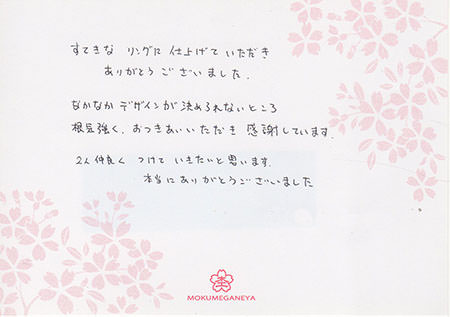 すてきな リングに 仕上げて いただき
ありがとう ございました.
なかなか デザインが 決められないところ
根気強く、おつきあいいただき 感謝しています.
2人 仲良く つけて いきたいと 思います.
本当に ありがとうございました
MOKUMEGANEYA